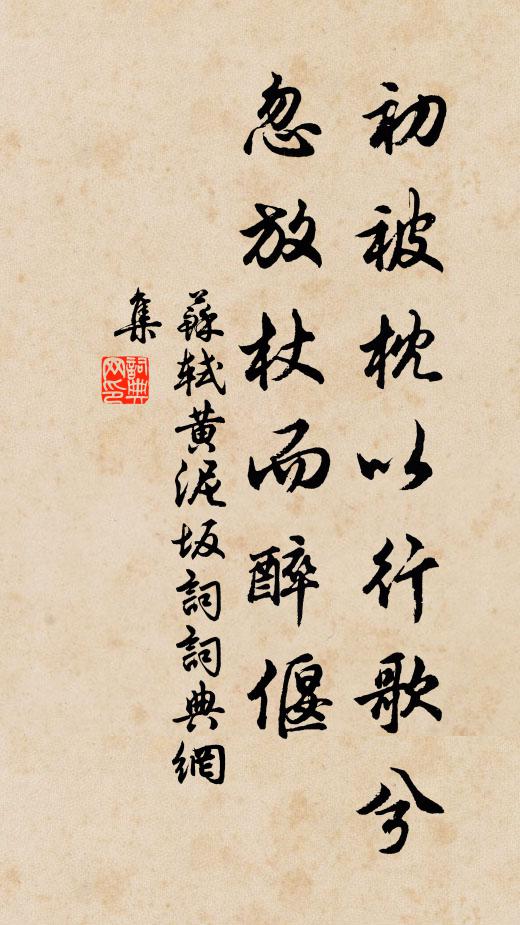 初被枕以行歌兮
忽放杖而醉偃
蘇軾黃泥坂詞詞典網
集
詞典
网印